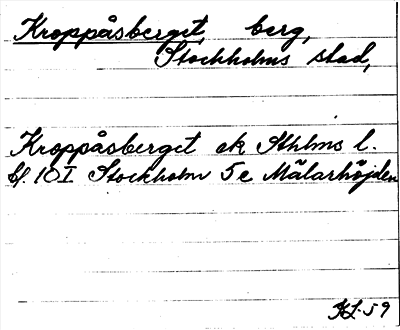 Kroppåsberget, berg,
Stockholms stad,
Kroppåsberget ek Sthlms l.
bl. 10 I Stockholm 5 c Mälarhöjden
KL-59